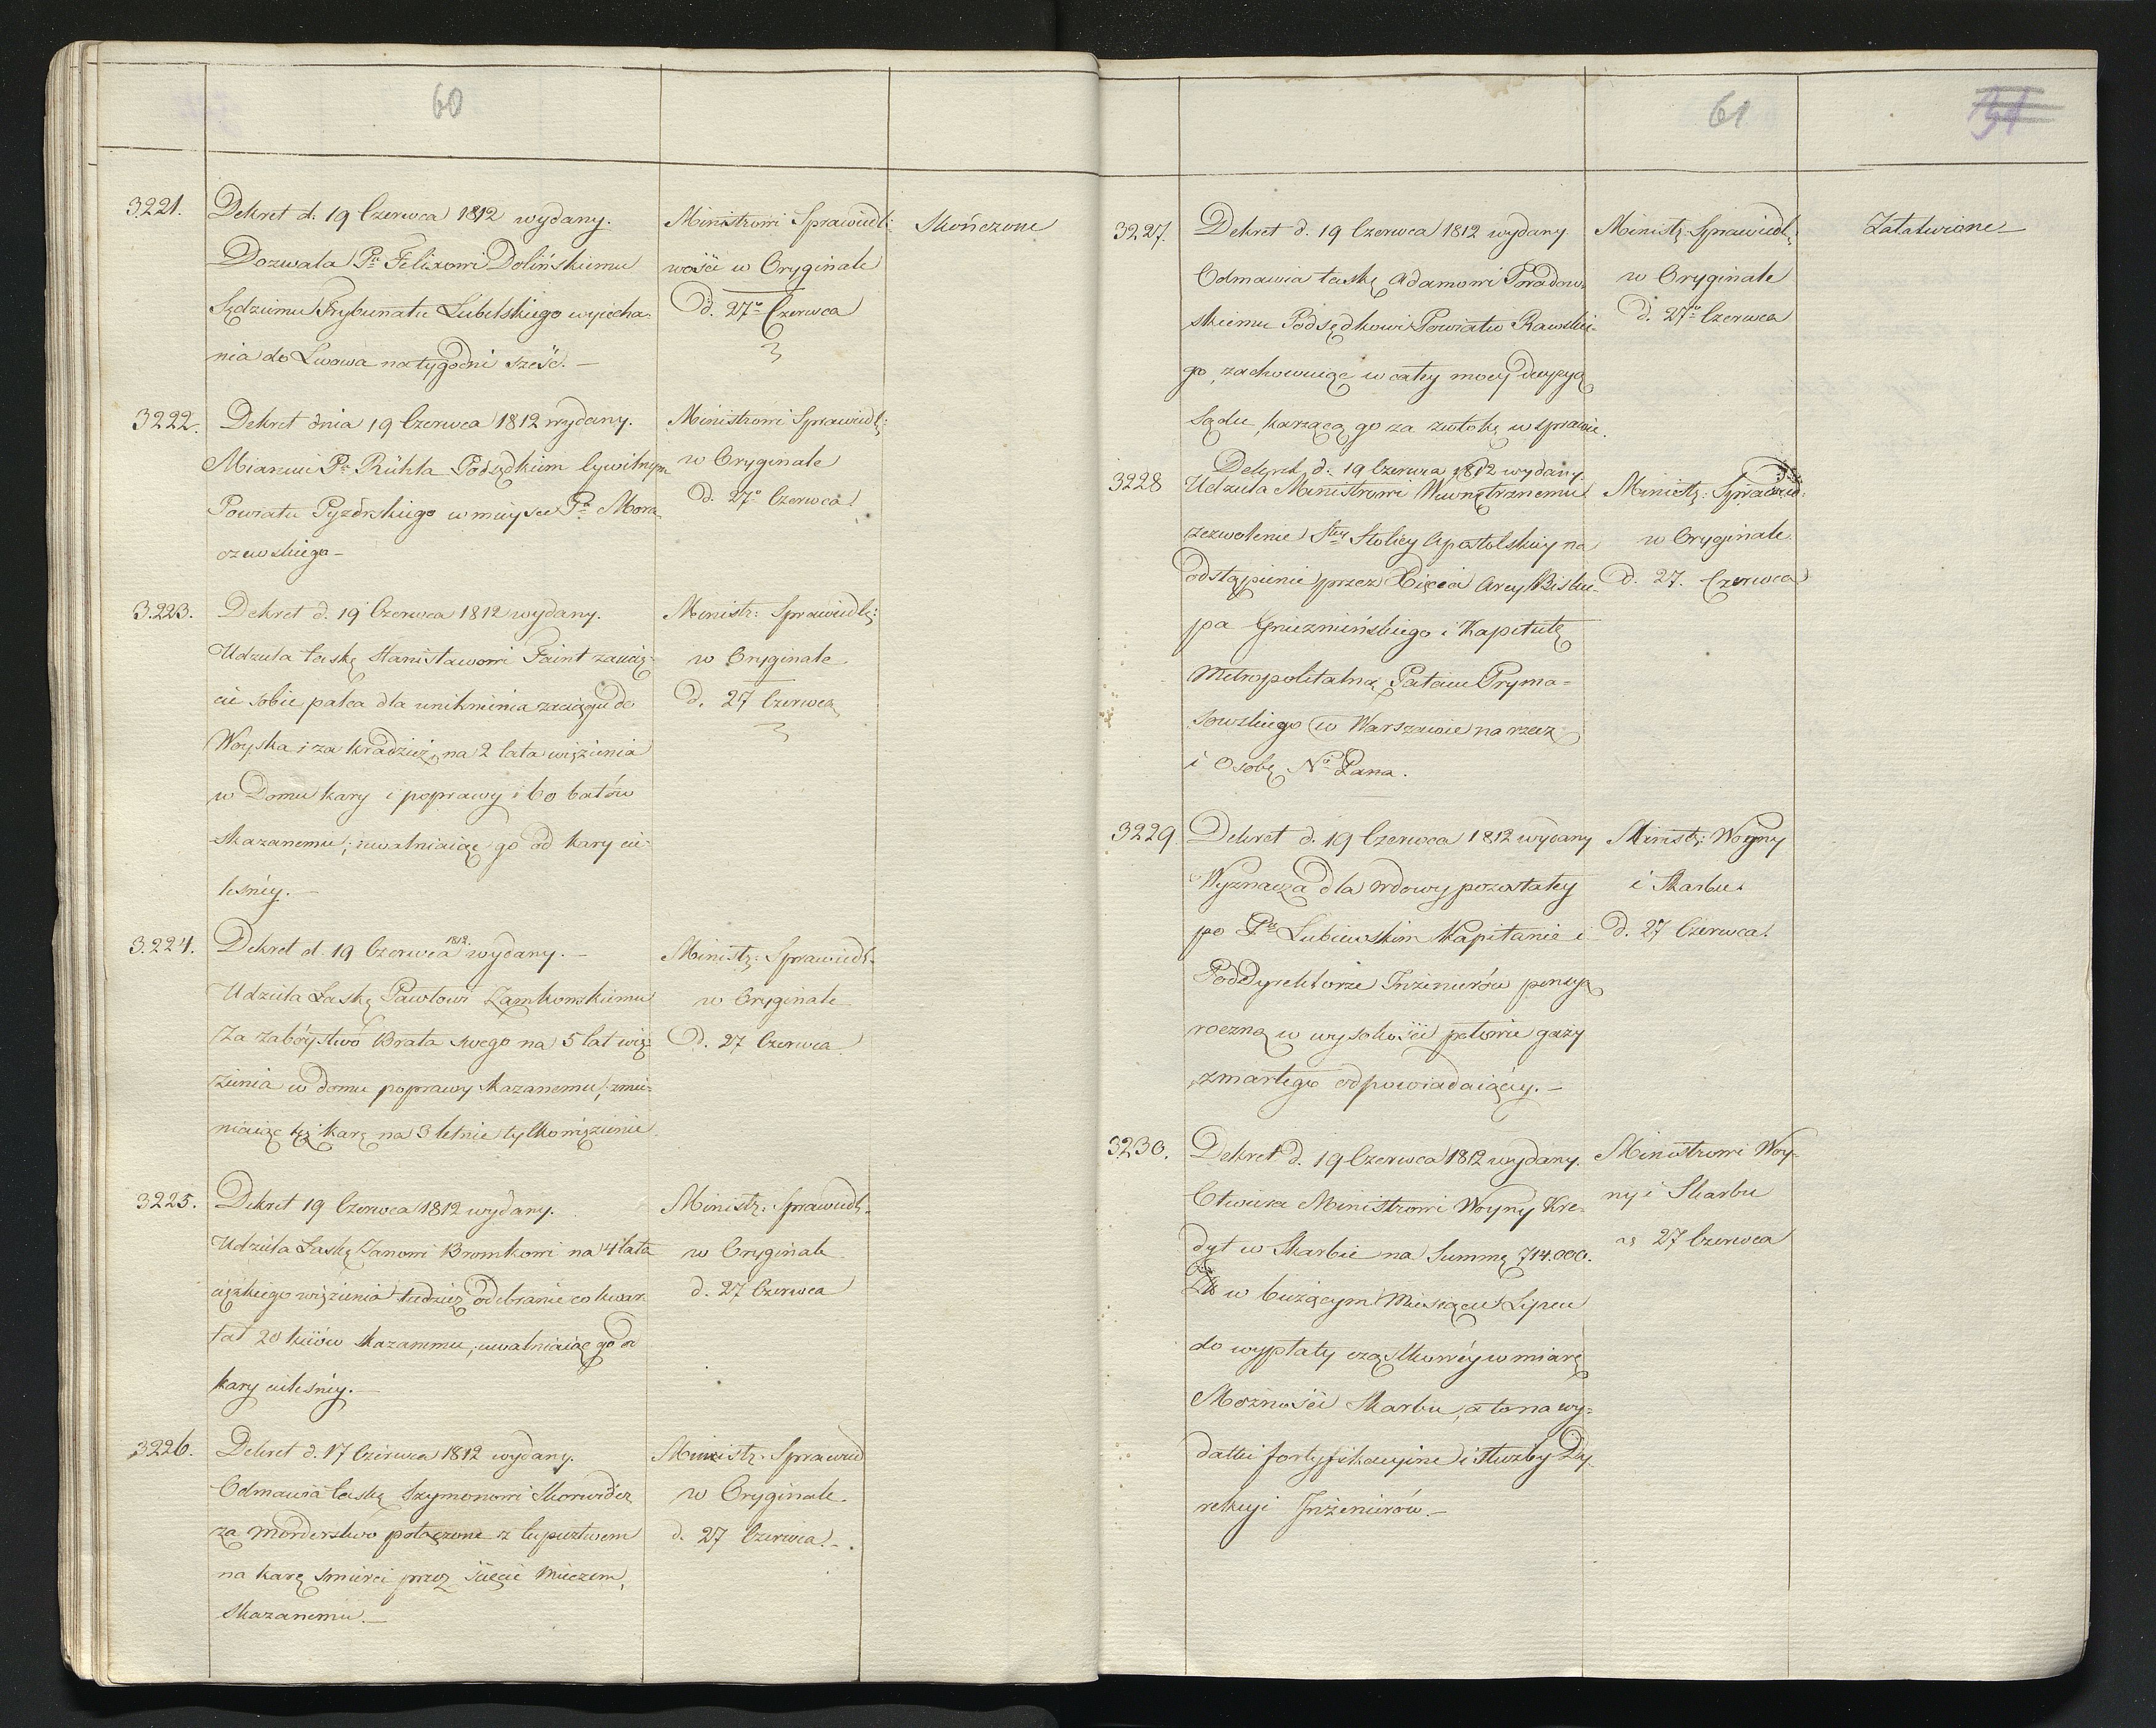 60
3221. Dekret d. 19 Czerwca 1812 wydany. Ministrowi Sprawiedli= Skończone
Dozwala Pu Felixowi Dolińskiemu wości w Oryginale
Sędziemu Trybunatu Lubelskiego wyiecha= d. 27o Czerwca
nia do Lwowa na tygodni sześć. —
3222. Dekret dnia 19 Czerwca 1812 wydany. Ministrowi Sprawiedl:
Mianuie Pa Rühla Podsędkiem Cywilnym w Oryginale
Powiatu Pyzdrskiego w mieysce Pa Mora d. 27o Czerwca.
czewskiego —
3223. Dekret d. 19 Czerwca 1812 wydany. Ministr: Sprawiedl:
Udziela łaskę Stanisławowi Faint za ucię= w Oryginale
cie sobie palca dla uniknienia zaciągu do d. 27 Czerwca
Woyska i za kradzież, na 2 lata więzienia
w Domu kary i poprawy i 60 batów
skazanemu, uwalniaiąc go od kary cie=
lesnéy. —
3224. Dekret d. 19 Czerwca 1812. wydany. — Ministr: Sprawiedl.
Udziela Łaskę Pawłowi Zamkowskiemu w Oryginale
Za zabóystwo Brata swego na 5 lat wię= d. 27 Czerwca
zienia w domu poprawy skazanemu, zmie=
niaiąc tęż karę na 3 letnie tylko więzienie.
3225. Dekret 19 Czerwca 1812 wydany. Ministr: Sprawiedl.
Udziela Łaskę Janowi Bromkowi na 4 lata w Oryginale
ciężkiego więzienia tudzież odebranie co kwar d. 27 Czerwca
tał 20 kiiów skazanemu, uwalniaiąc go od
kary cielesnéy. —
3226. Dekret d. 17 Czerwca 1812 wydany. Ministr: Sprawied
Odmawia łaskę Szymonowi Skorwider w Oryginale.
za morderstwo połączone z łupieztwem d. 27 Czerwca. —
na karę smierci przez ścięcie mieczem,
skazanemu. —
61
3227. Dekret d. 19 Czerwca 1812 wydany Ministr: Sprawiedl: Załatwione —
Odmawia łaskę Adamowi Poradow= w Oryginale
skiemu Podsędkowi Powiatu Rawskie= d. 27o Czerwca
go, zachowuiąc w całey mocy decyzyą
Sądu, karzącą go za zwłokę w sprawie.
Dekret d. 19 Czerwca 1812 wydany
3228 Udziela Ministrowi Wewnętrznemu Ministr: Sprawied:
zezwolenie Stey Stolicy Apostolskiey na w Oryginale.
odstąpienie przez Xięcia Arcy Bisku= d. 27. Czerwca
pa Gnieznińskiego i Kapitułę
Metropolitalną Pałacu Pryma=
sowskiego w Warszawie na rzecz
i Osobę Ngo Pana.
3229 Dekret d. 19 Czerwca 1812 wydany Ministr: Woyny
Wyznacza dla wdowy pozostałey i Skarbu.
po Pu Lubiewskim Kapitanie i d. 27 Czerwca.
PodDyrektorze Inżinierów pensyą
roczną w wysokości połowie gaży
zmarłego odpowiadaiącéy. —
3230. Dekret d. 19 Czerwca 1812 wydany. Ministrowi Woy=
Otwiera Ministrowi Woyny Kre= ny i Skarbu
dyt w Skarbie na Summę 714.000. 27 Czerwca
Zł w bieżącym Miesiącu Lipcu
do wypłaty cząstkowéy w miarę
Możności Skarbu, a to na wy=
datki fortyfikacyine i służby Dy=
rekcyi Inżenierów. —